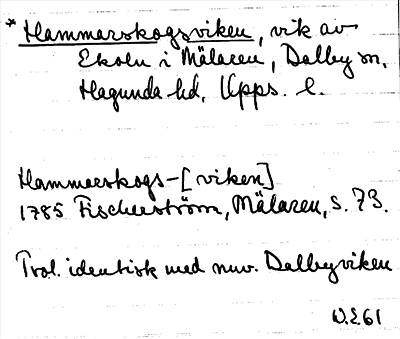 * Hammarskogsviken, vik av
Ekoln i Mälaren, Dalby sn,
Hagunda hd, Upps. l.
Hammarskogs-[viken]
1785 Fischerström, Mälaren, s. 73.
Trol. identisk med nuv. Dalbyviken